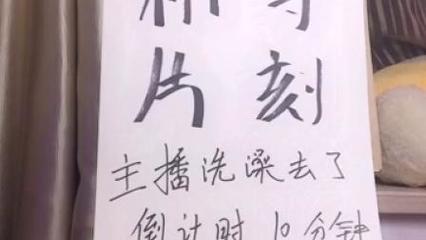 片刻
主播洗澡去了
倒计时 10分钟